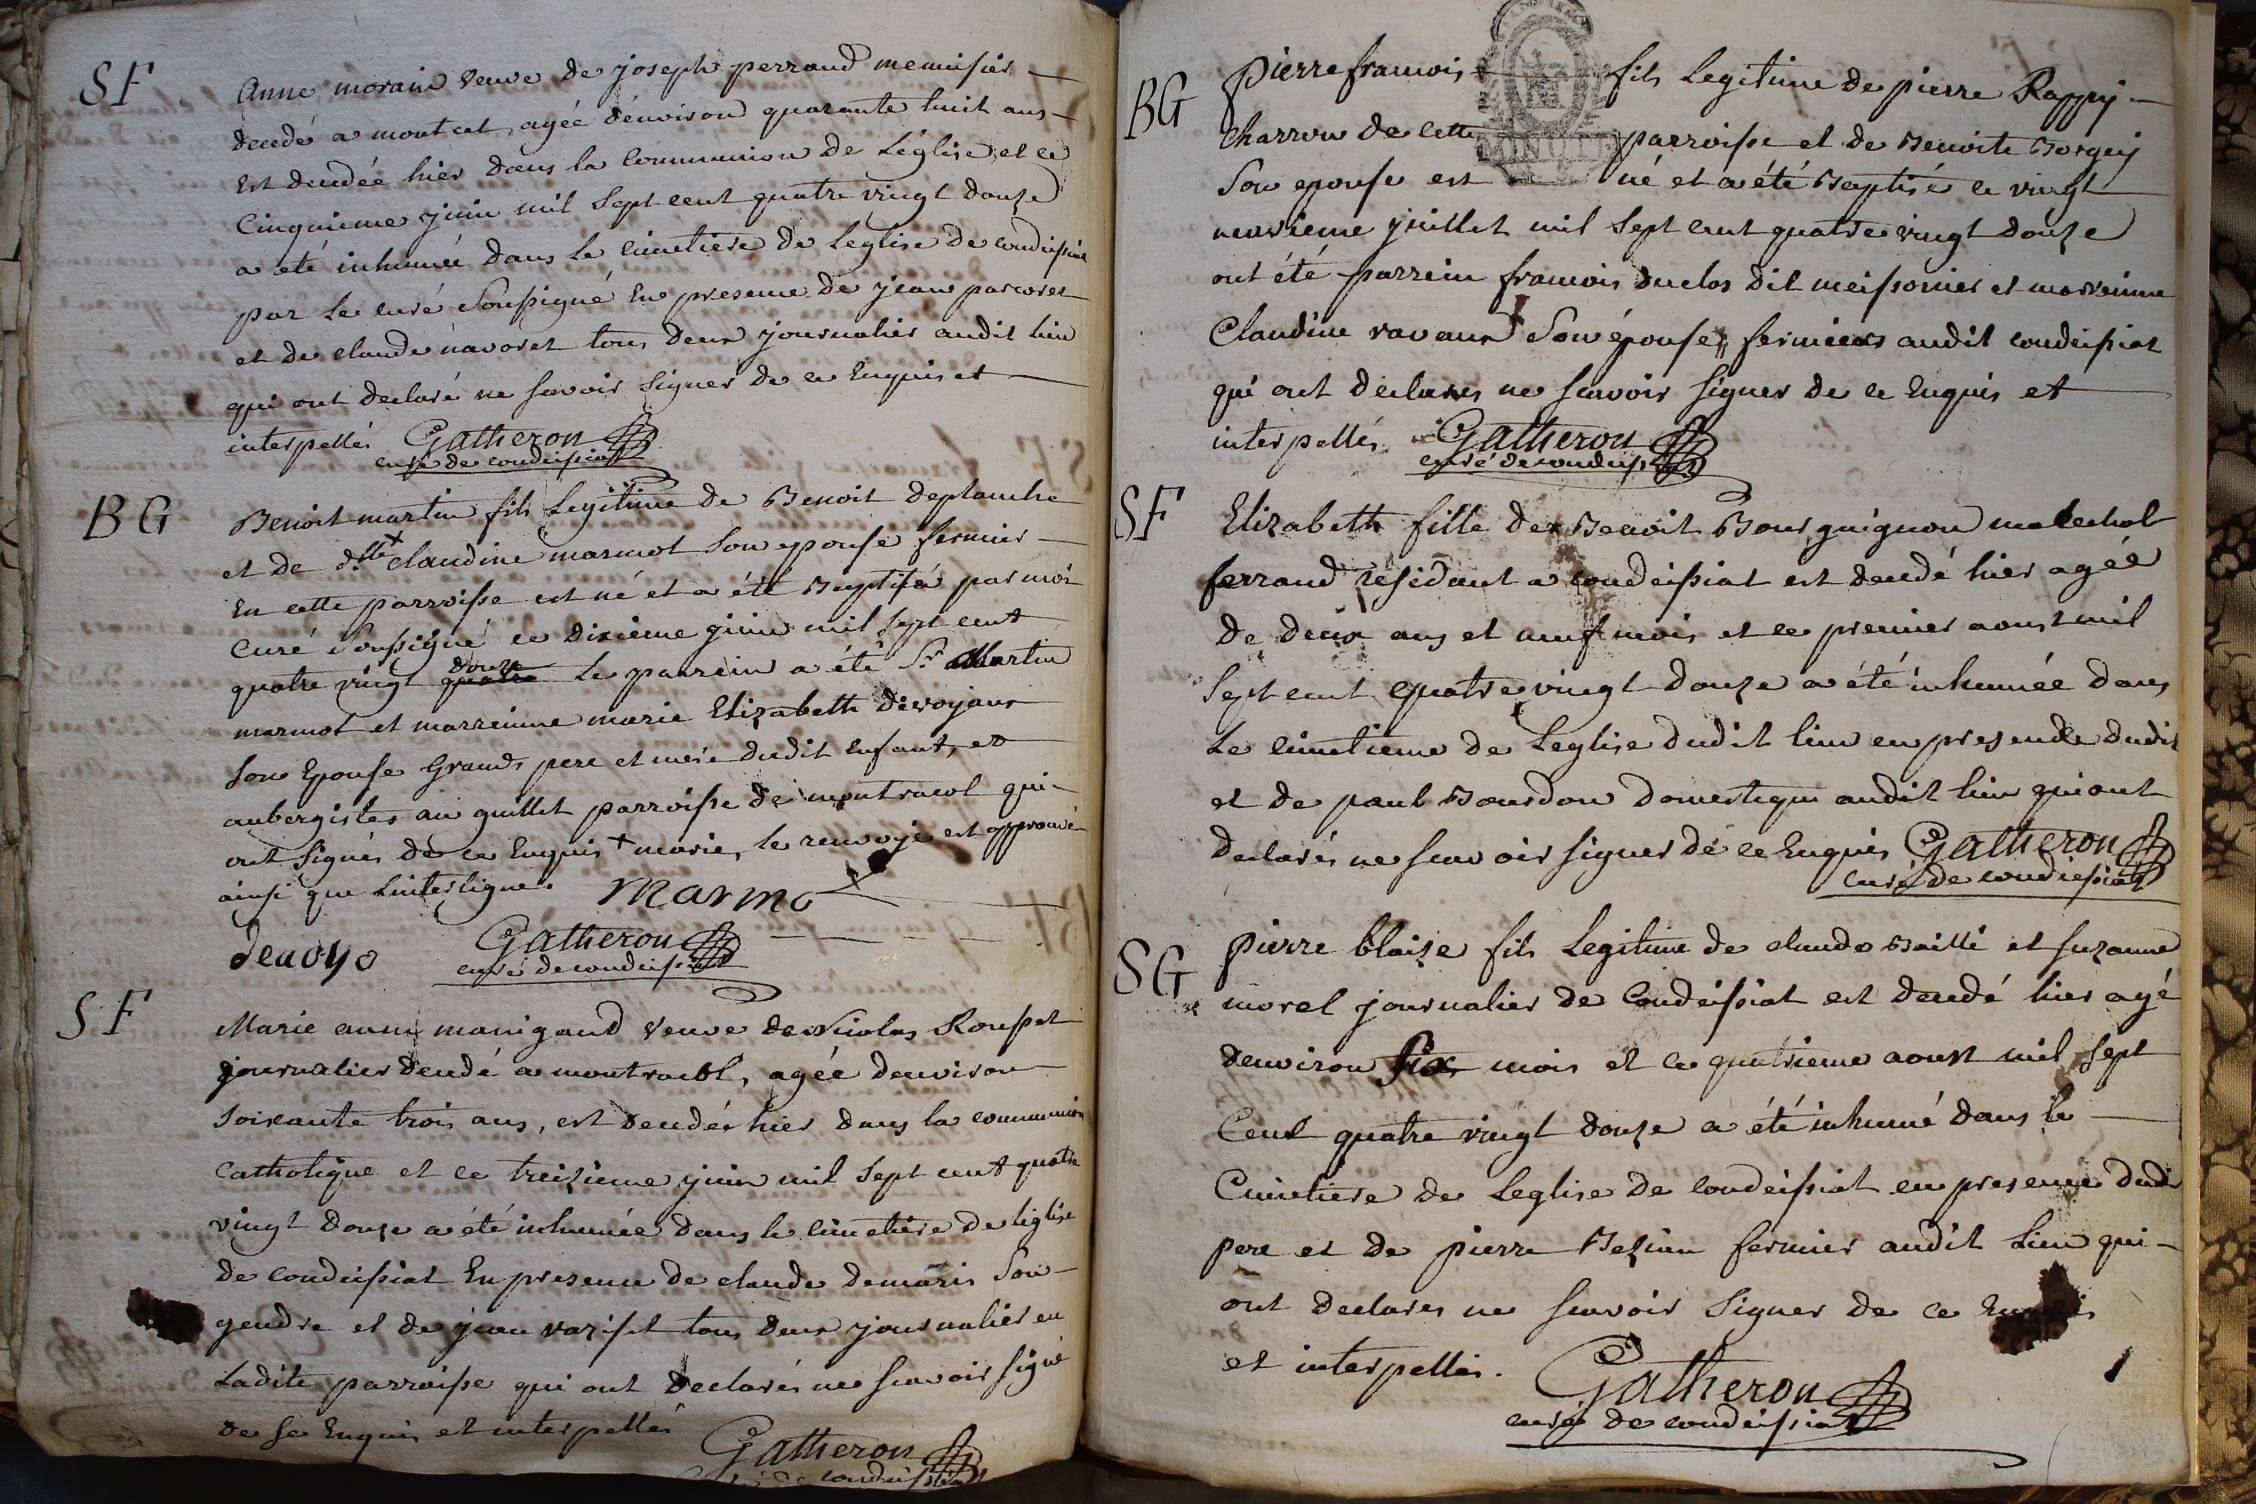 SF
Anne morain veuve de joseph perraud menuisier
decedé a montcet, agée d'environ quarante huit ans
est decedée hier dans la Communion de l'église et ce
Cinquieme juin mil sept cent quatre vingt douze
a été inhumée dans le cimetiere de leglise de condeissiat
par le curé soussigné En presence de jean
et de claude navoret tous deux journalier audit lieu
qui ont declaré ne savoir signer de ce Enquis et
interpellés Gatheron
curé de condeissiat
BG
Benoit martin fils legitime de Benoit deplanche
et de dlle + claudine marmot son epouse fermier
En cette parroisse est né et a été Baptisé par moi
Curé soussigné ce dixieme juin mil sept cent
quatre vingt douze le parrein a été Sr Martin
marmot et marreinne marie Elizabeth devoyau
son Epouse Grands pere et mere dudit Enfant, et
aubergistes au guillet parroisse de montracol qui
ont signés de ce Enquis + marie, le renvoje est approuvé
ainsi que linterligne. Marmo
devoyo Gatheron
curé de condeissiat
SF
Marie anne manigand veuve de Nicolas Rousset
journalier decedé a montracol, agée denviron
soixante trois ans, est decedée hier dans la communion
Catholique et ce treizieme juin mil sept cent quatre
vingt douze a été inhumée dans le cimetiere de leglise
de condeissiat En presence de claude demaris son
gendre et de jean tous deux journalier en
Ladite parroisse qui ont declarés ne scavoir signé
de se Enquis et interpellés
Gatheron
curé de condeissiat
BG
pierre francois fils legitime de pierre Rappy
Charron de cette parroisse et de Benoite Borgey
Son epouse est né et a été Baptisé ce vingt
neuvieme juillet mil sept cent quatre vingt douze
ont été parrein francois duclos dit meissonier et marreinne
Claudine ravaux Son épouse, fermiers audit condeissiat
qui ont declarés ne scavoir signer de ce Enquis et
interpellés Gatheron
curé de condeissiat
SF
Elizabeth fille de Benoit Bourguignon marechal
ferrand résidant a condeissiat est decedé hier agée
de deux ans et neuf mois et ce premier aoust mil
sept cent quatre vingt douze a été inhumée dans
le cimetieme de leglise dudit lieu en presence dudit
et de paul Bourdon domestique audit lieu qui ont
declarés ne scavoir signer de ce Enquis Gatheron
curé de condeissiat
SG
pierre blaize fils legitime de claude Baillé et suzanne
morel journalier de Condeissiat est decedé hier agé
denviron six mois et ce quatrieme aoust mil sept
Cent quatre vingt douze a été inhumé dans le
Cimetiere de Leglise de condeissiat en presence dudi
pere et de pierre Bezian fermier audit Lieu qui
ont declarés ne scavoir signer de ce Enquis
et interpellés. Gatheron
curé de condeissiat